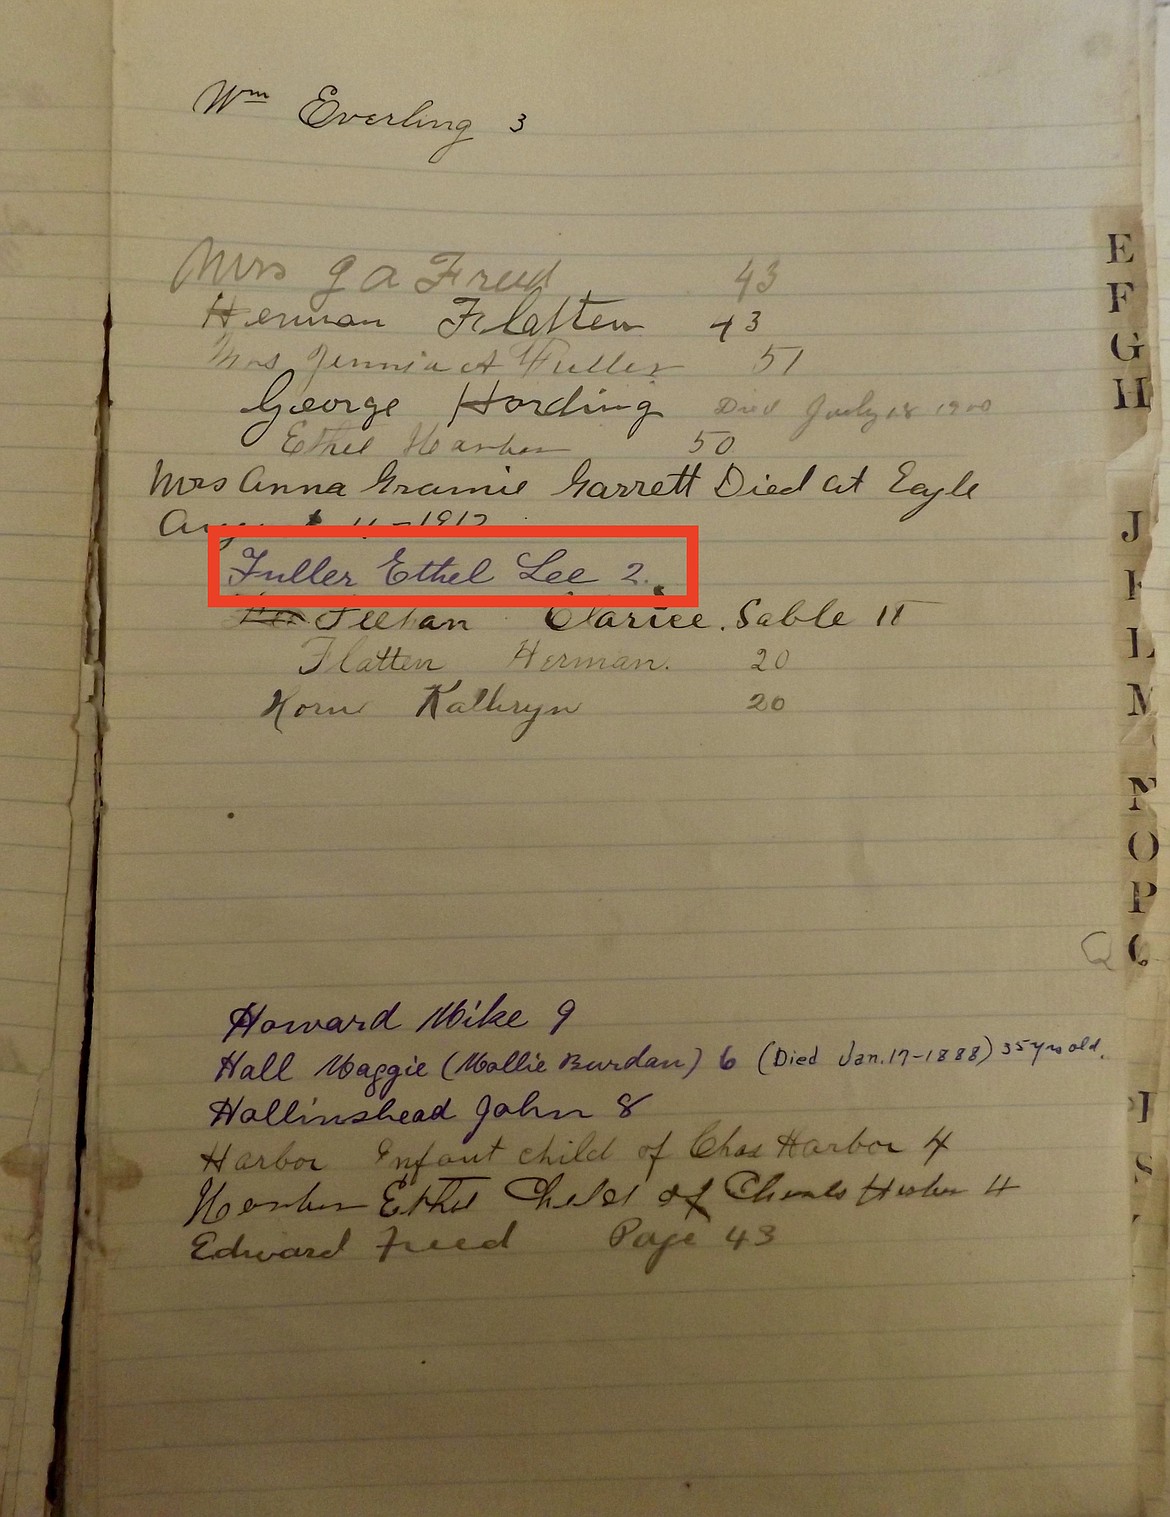 Wm Everling 3
Mrs G A Freed 43
Herman Flatten 43
Mrs Jennie A Fuller 51
George Harding Died July 18 1900
Ethel Harbor 50
Mrs Anna Gramie Garrett Died at Eagle
11-1912
Fuller Ethel Lee 2.
Feehan Clarice. Sable 18
Flatten Herman. 20
Horn Kathryn 20
Howard Mike 9
Hall Maggie (Mollie Burdan) 6 (Died Jan. 17-1888) 35 yrs old.
Hollinshead John 8
Harbor Infant child of Chas Harbor 4
Harbor Ethel Child of Charles Harbor 4
Edward Freed Page 43
E
F
G
H
J
L
M
N
O
P
Q